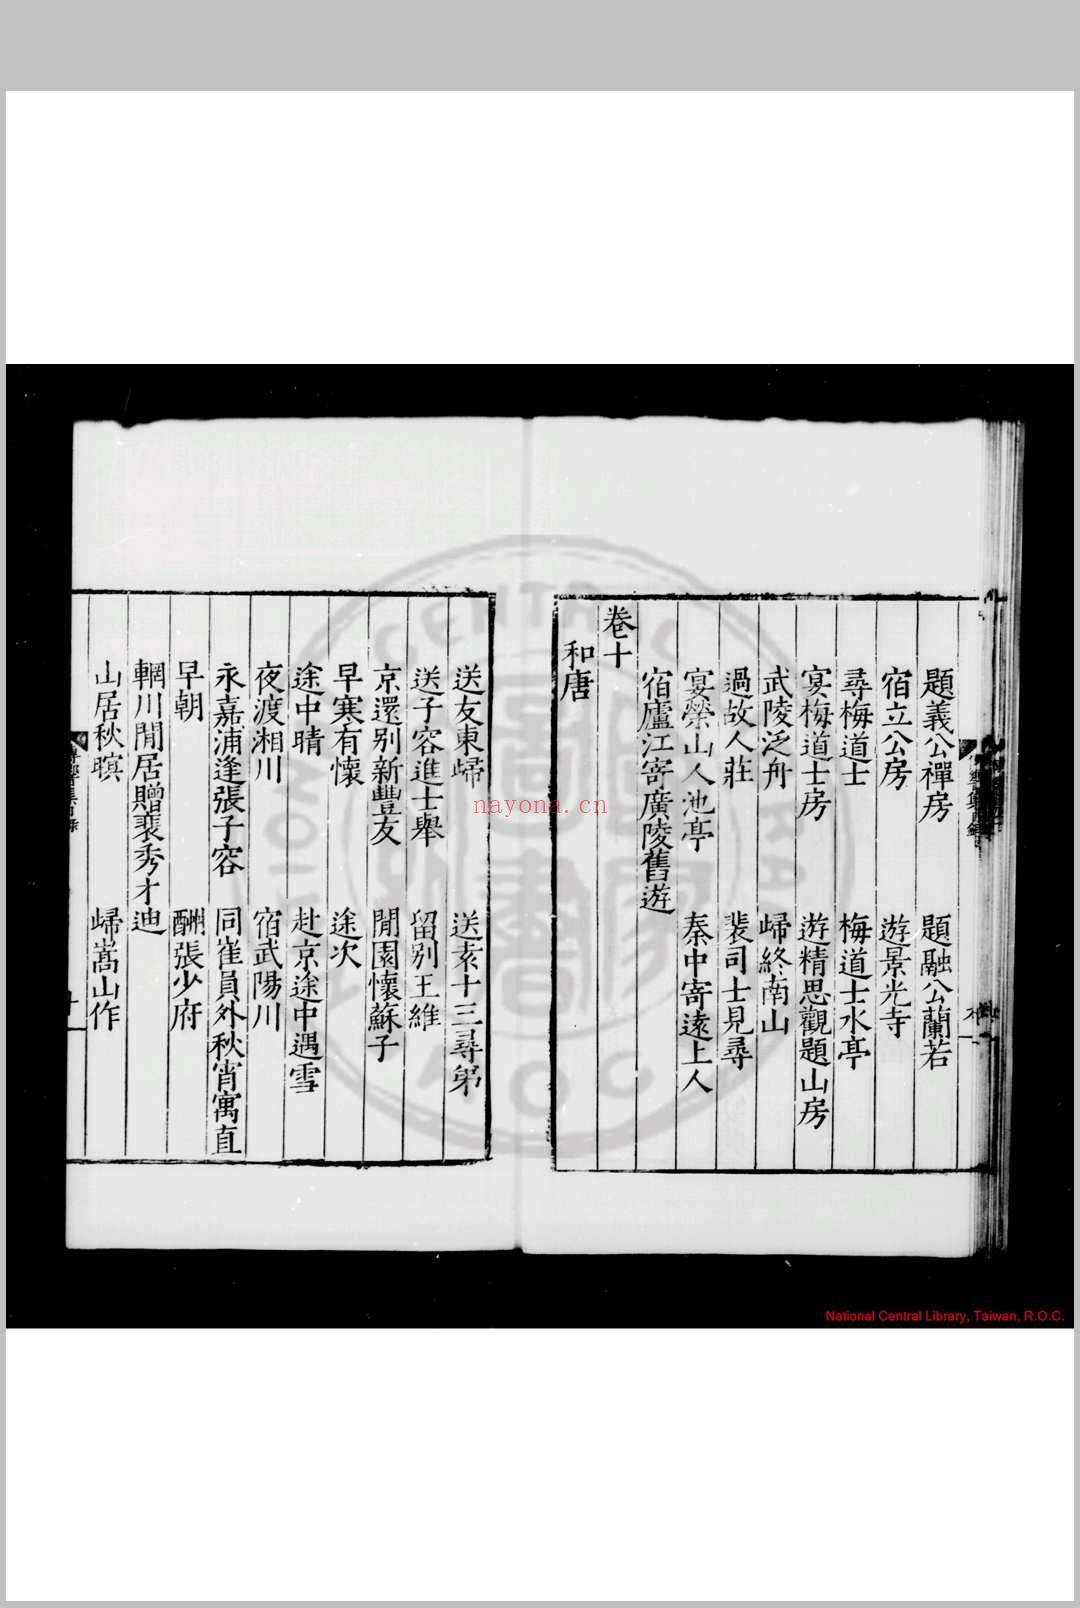 題義公禪房　題融公蘭若
宿立公房　遊景光寺
尋梅道士　梅道士水亭
宴梅道士房　遊精思觀題山房
武陵泛舟　歸終南山
過故人莊　裴司士見尋
宴榮山人池亭　秦中寄遠上人
宿廬江寄廣陵舊遊
卷十
和唐
送友東歸　送袁十三尋弟
送子容進士舉　留別王維
京還別新豐友　閒園懷蘇子
早寒有懷　途次
途中晴　赴京途中遇雪
夜渡湘川　宿武陽川
永嘉浦逢張子容　同崔員外秋宵寓直
早朝　酬張少府
輞川閒居贈裴秀才迪
山居秋暝　歸嵩山作
十
nayona.cn
National Central Library, Taiwan, R.O.C.